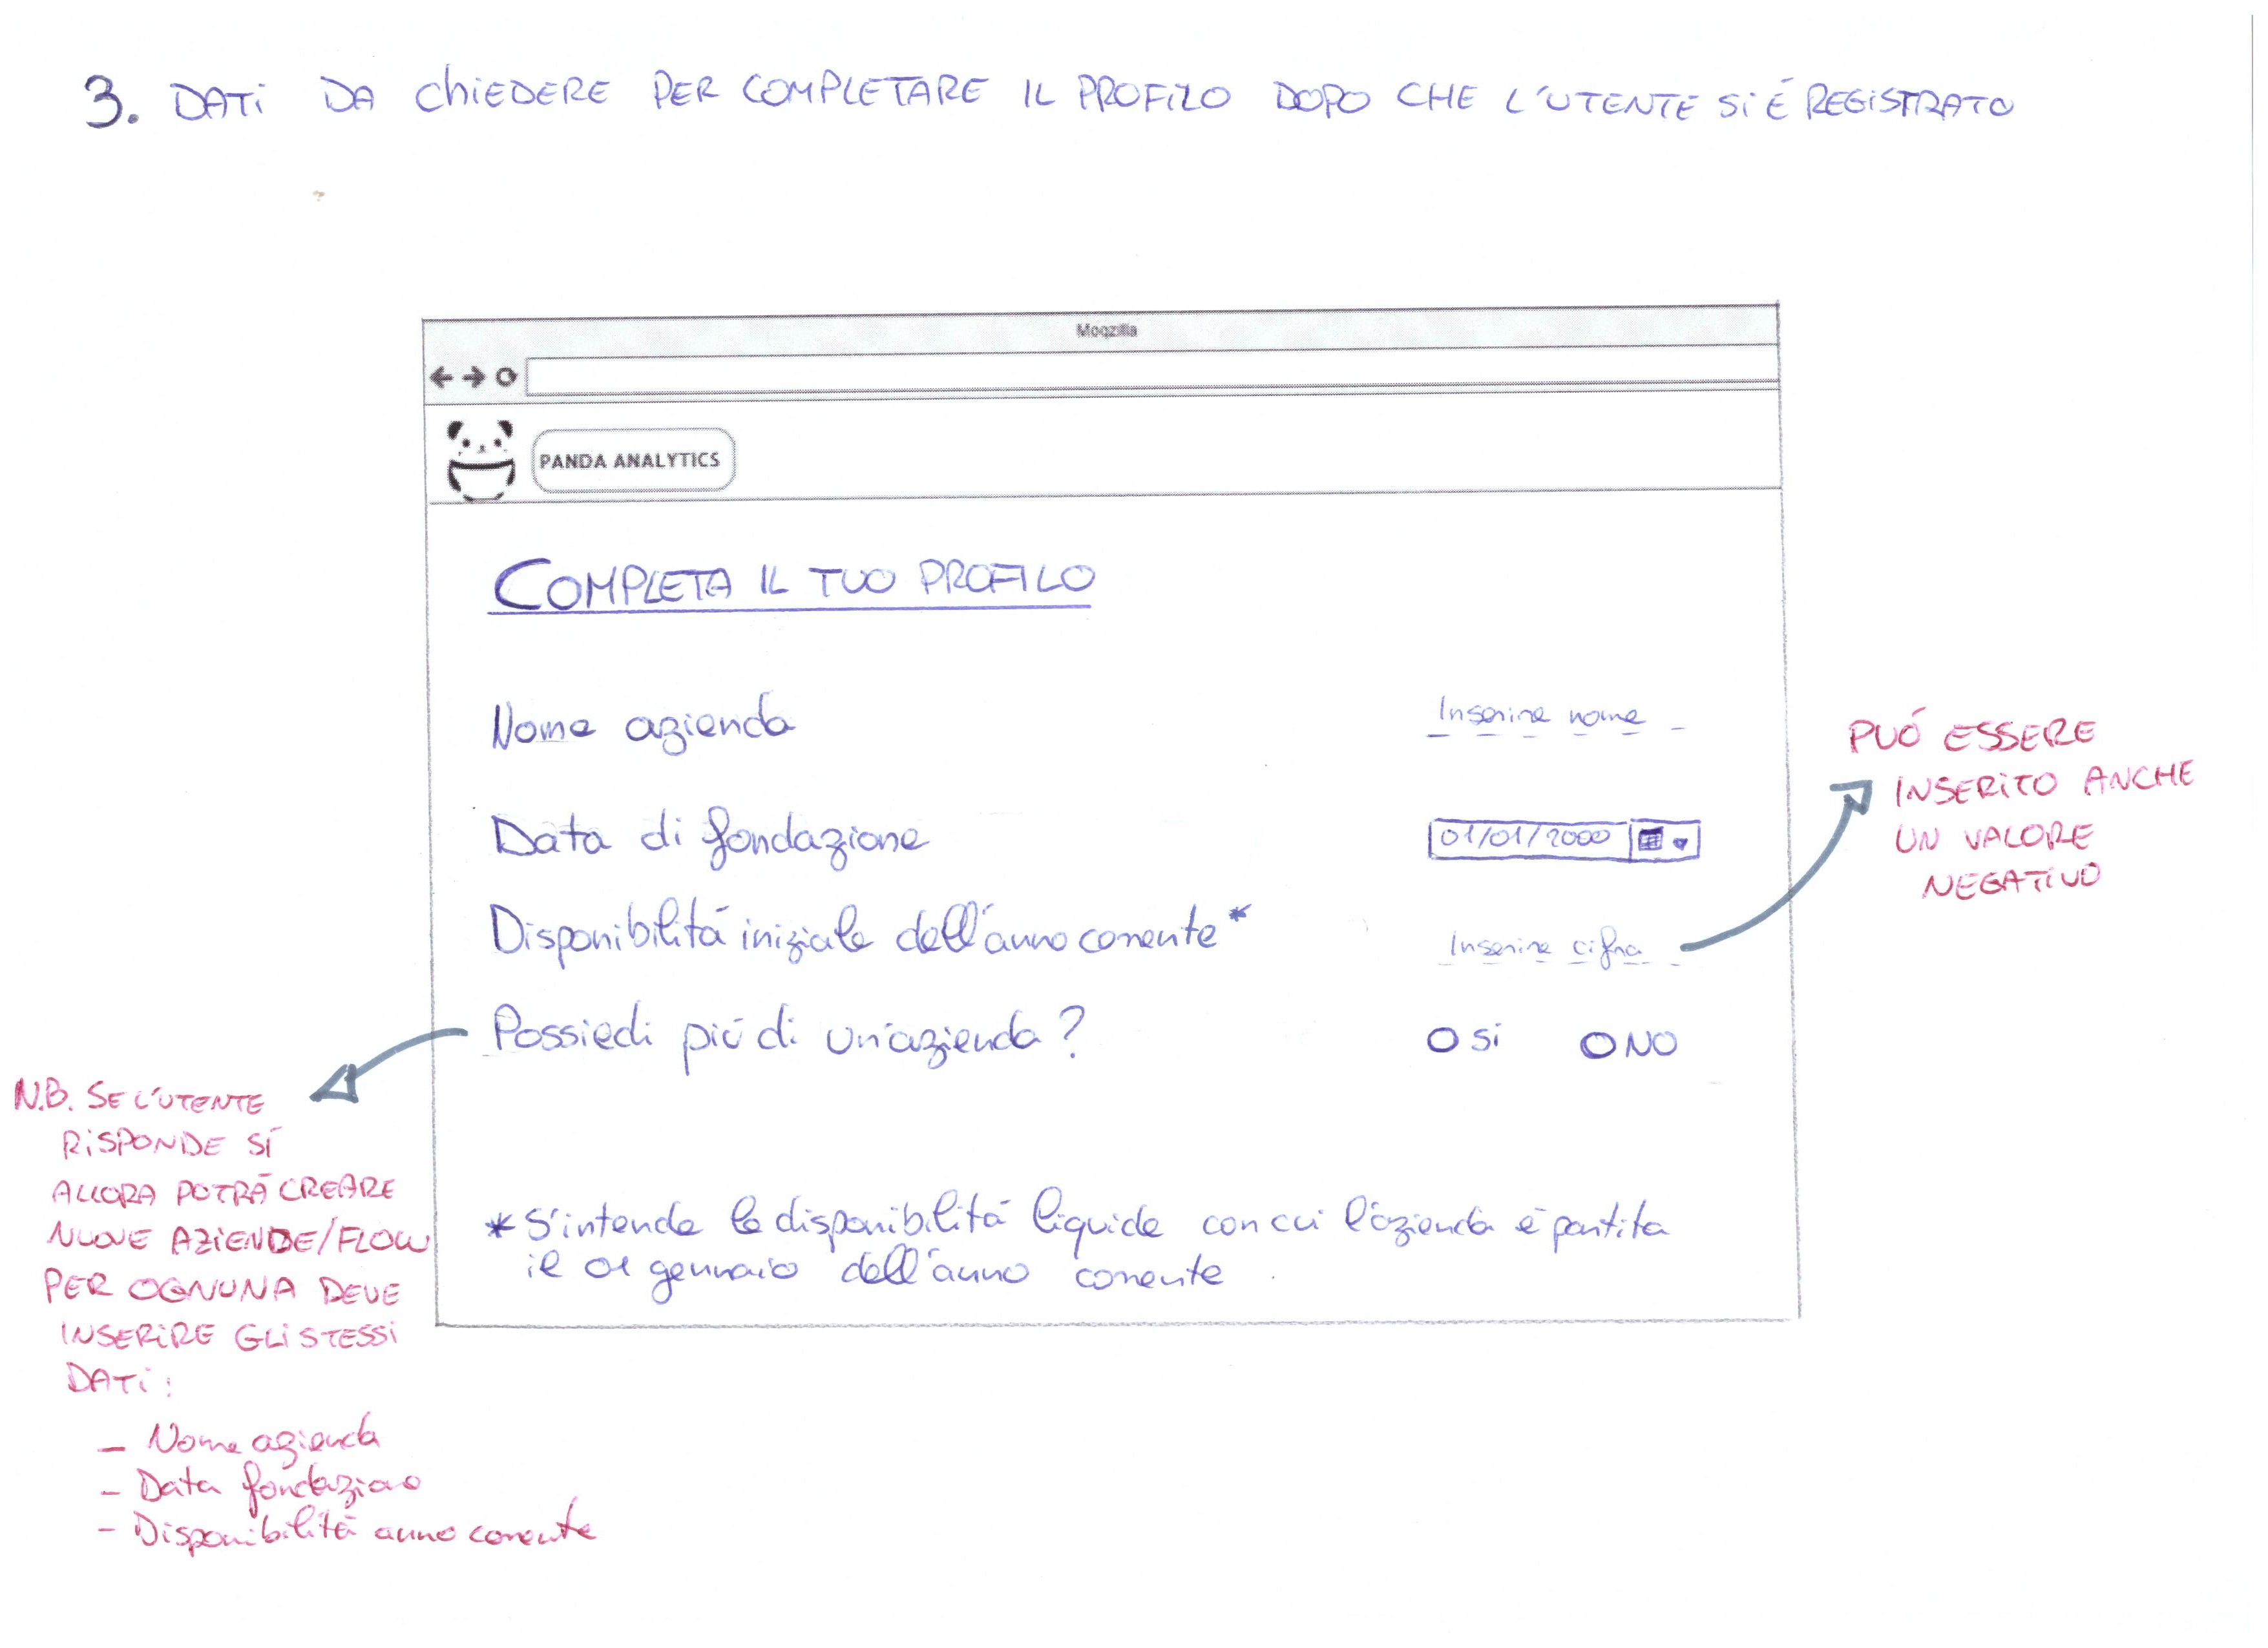 3. DATI DA CHIEDERE PER COMPLETARE IL PROFILO DOPO CHE L'UTENTE SI É REGISTRATO
Moqzilla
PANDA ANALYTICS
COMPLETA IL TUO PROFILO
Nome azienda
Inserire nome
Data di fondazione
01/01/2000
Disponibilitá iniziale dell'anno corrente*
Inserire cifra
Possiedi piú di un'azienda?
SI
NO
*S'intende la disponibilitá liquida con cui l'azienda é partita
il 01 gennaio dell'anno corrente
PUÓ ESSERE
INSERITO ANCHE
UN VALORE
NEGATIVO
N.B. SE L'UTENTE
RISPONDE SÍ
ALLORA POTRÁ CREARE
NUOVE AZIENDE/FLOW
PER OGNUNA DEVE
INSERIRE GLI STESSI
DATI:
- Nome azienda
- Data fondazione
- Disponibilitá anno corrente